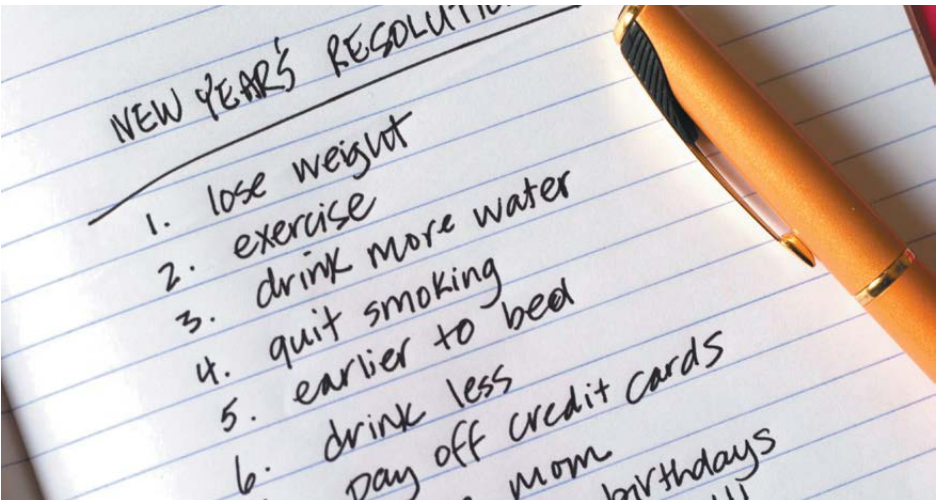 NEW YEAR'S RESOLUTIO
1. lose weight
2. exercise
3. drink more water
4. quit smoking
5. earlier to bed
6. drink less
pay off credit cards
mom
birthdays